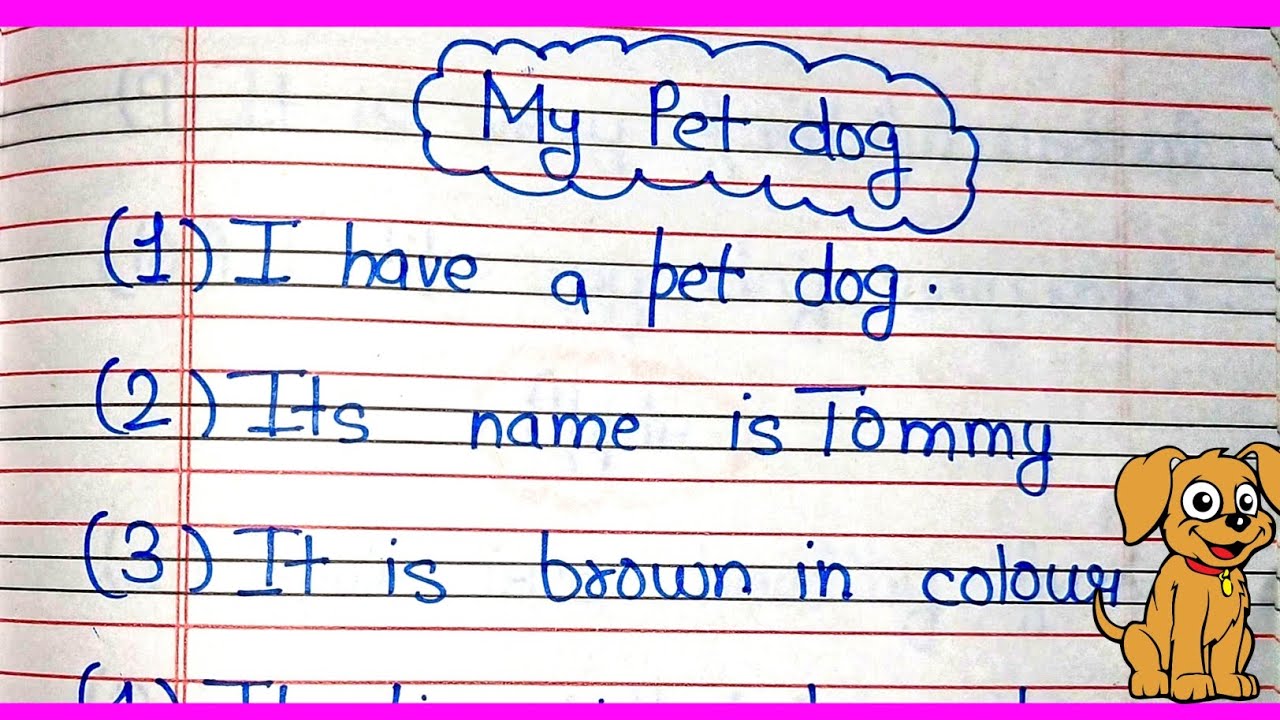 My Pet dog
(1) I have a pet dog.
(2) Its name is Tommy
(3) It is brown in colour